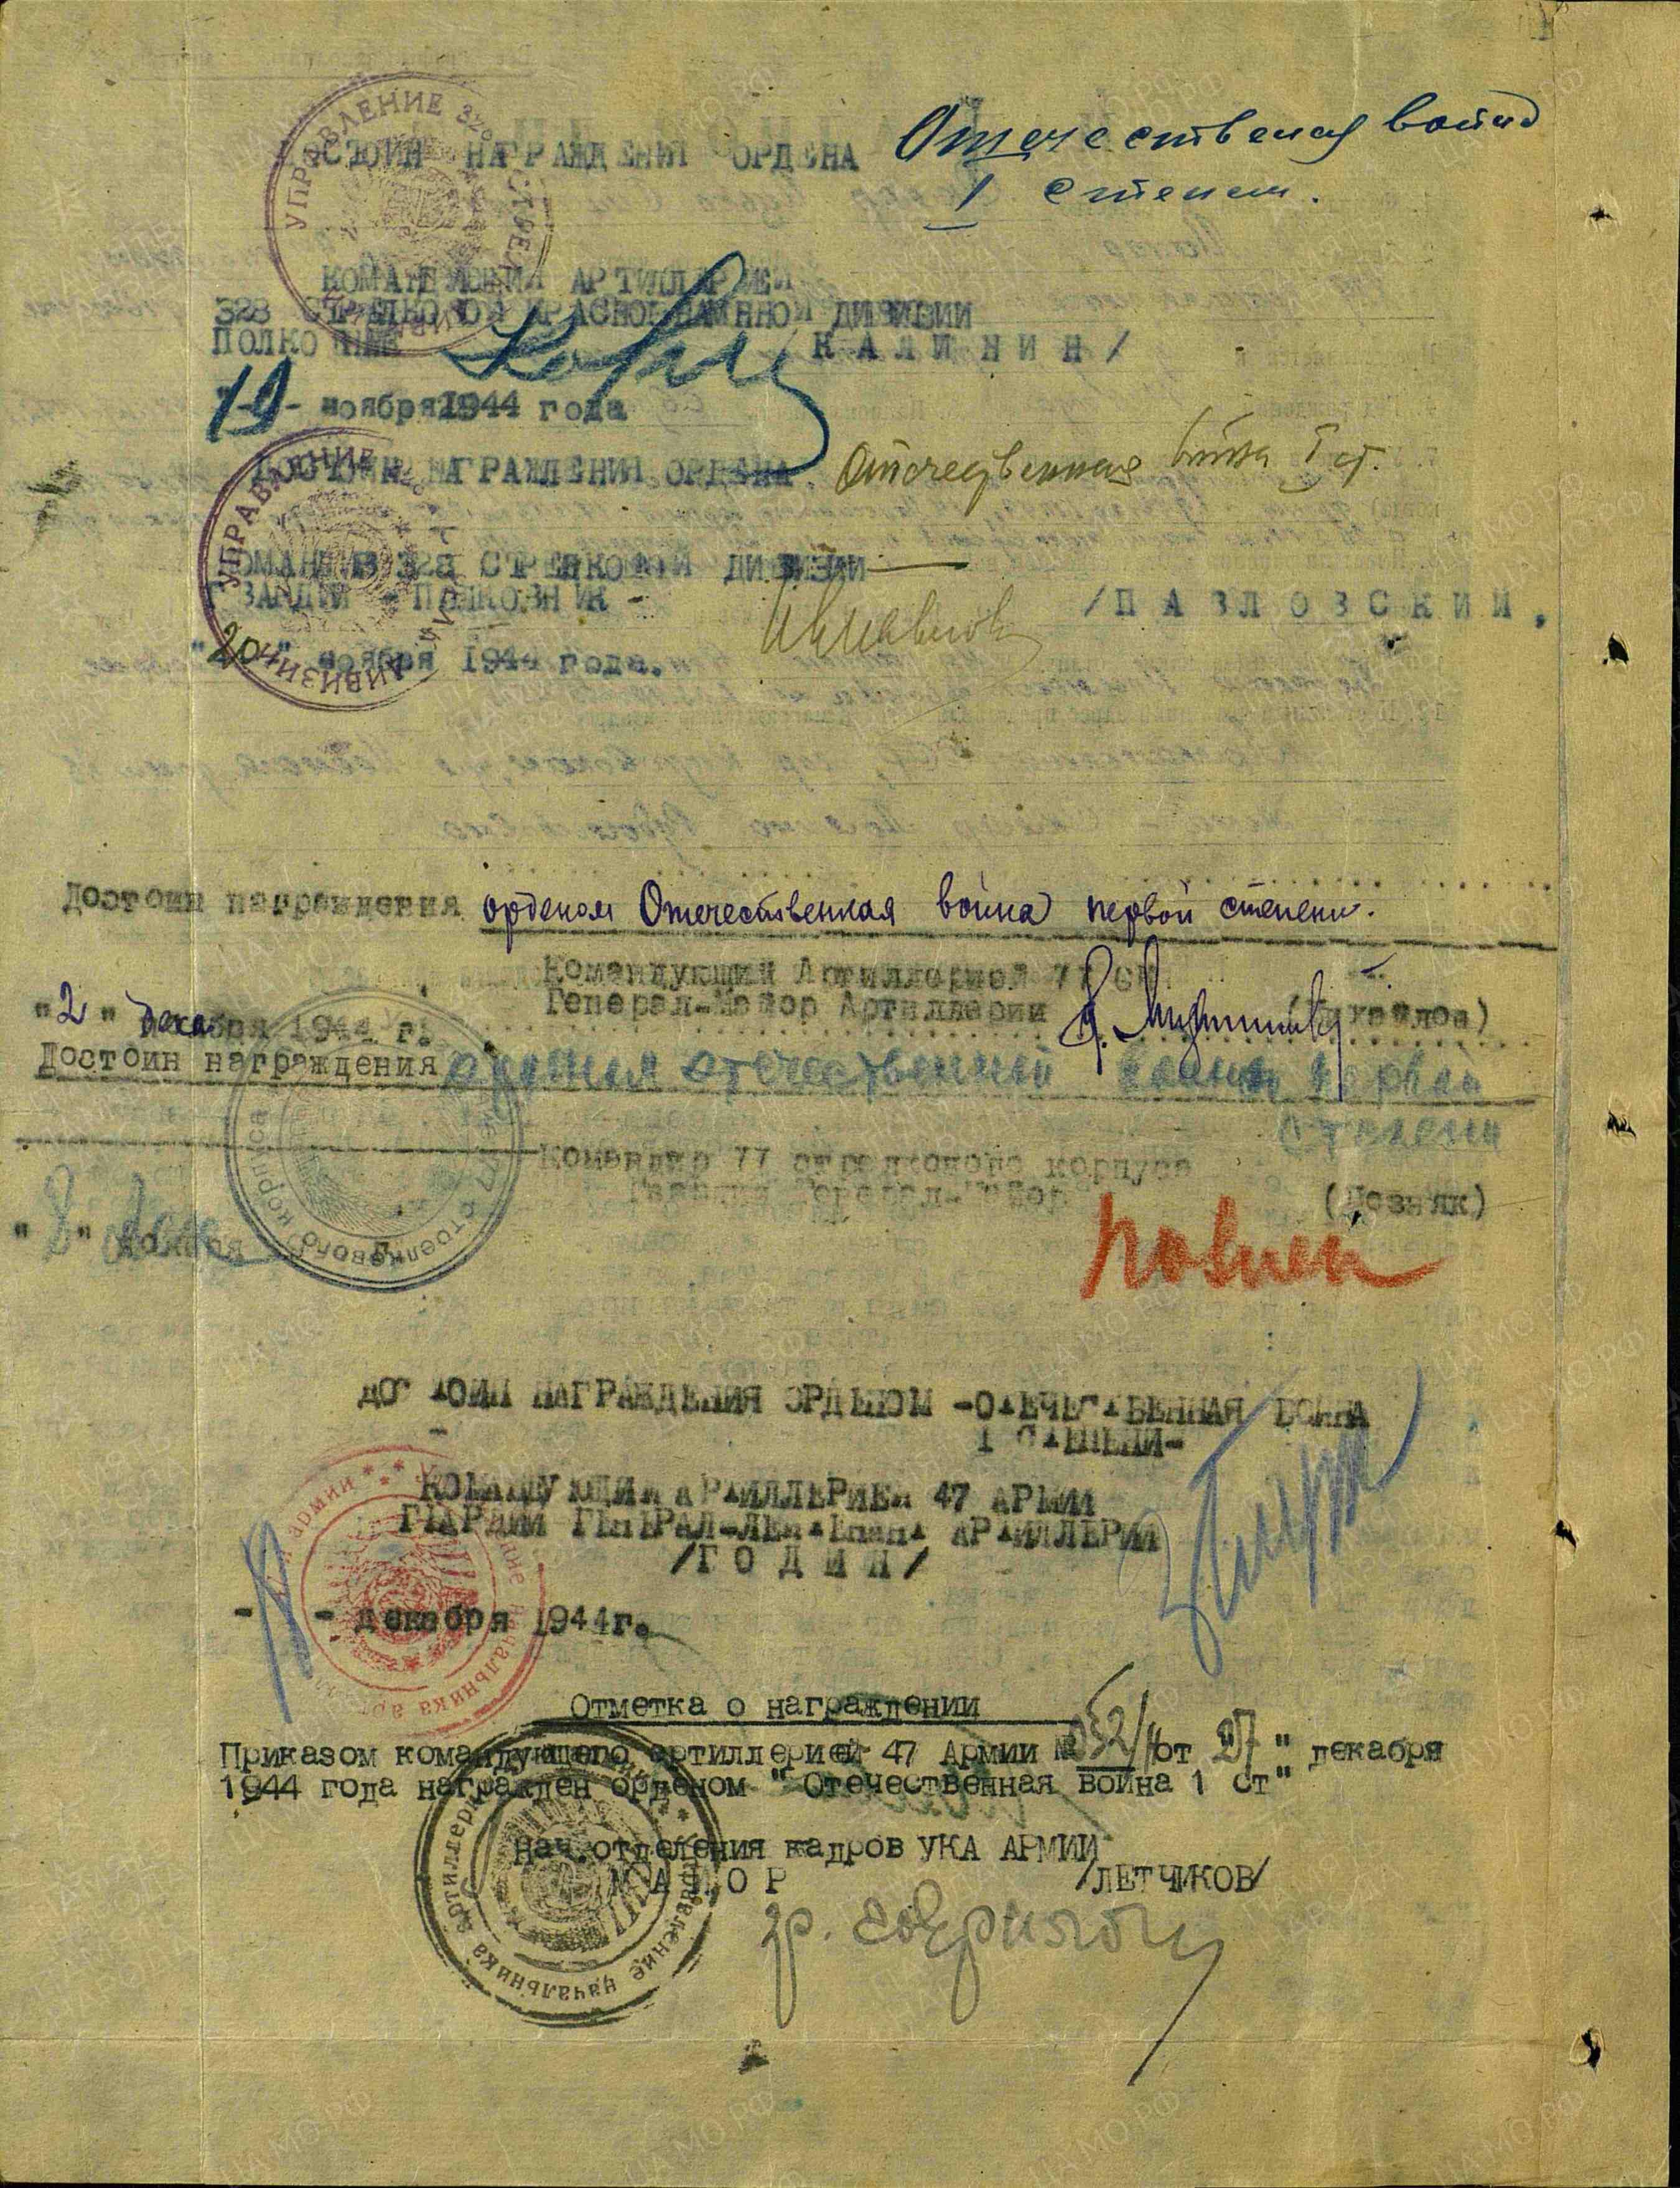 ДОСТОИН НАГРАЖДЕНИЯ ОРДЕНА Отечественая война
I степени.
КОМАНДУЮЩИЙ АРТИЛЛЕРИЕЙ
328 СТРЕЛКОВОЙ КРАСНОЗНАМЕННОЙ ДИВИЗИИ
ПОЛКОВНИК КАЛИНИН/
19 ноября 1944 года
ДОСТОИН НАГРАЖДЕНИЯ ОРДЕНА Отечественная война I ст.
КОМАНДИР 328 СТРЕЛКОВОЙ ДИВИЗИИ
ГВАРДИИ ПОЛКОВНИК - /ПАВЛОВСКИЙ.
"20" ноября 1944 года.
Достоин награждения орденом Отечественная война первой степени.
Командующий Артиллерией 77 СК
Генерал-Майор Артиллерии (Михайлов)
"2" декабря 1944 г.
Достоин награждения орденом отечественной войны первой
степени
Командир 77 стрелкового корпуса
Гвардии Генерал-Майор (Позняк)
"8" дек
ДОСТОИН НАГРАЖДЕНИЯ ОРДЕНОМ -ОТЕЧЕСТВЕННАЯ ВОЙНА
I СТЕПЕНИ-
КОМАНДУЮЩИЙ АРТИЛЛЕРИЕЙ 47 АРМИИ
ГВАРДИИ ГЕНЕРАЛ-ЛЕЙТЕНАНТ АРТИЛЛЕРИИ
/ГОДИН/
- - декабря 1944г.
Отметка о награждении
Приказом командующего артиллерией 47 Армии № 052/н от "27" декабря
1944 года награжден орденом "Отечественная война 1 ст"
нач.отделения кадров УКА АРМИИ
МАЙОР /ЛЕТЧИКОВ/